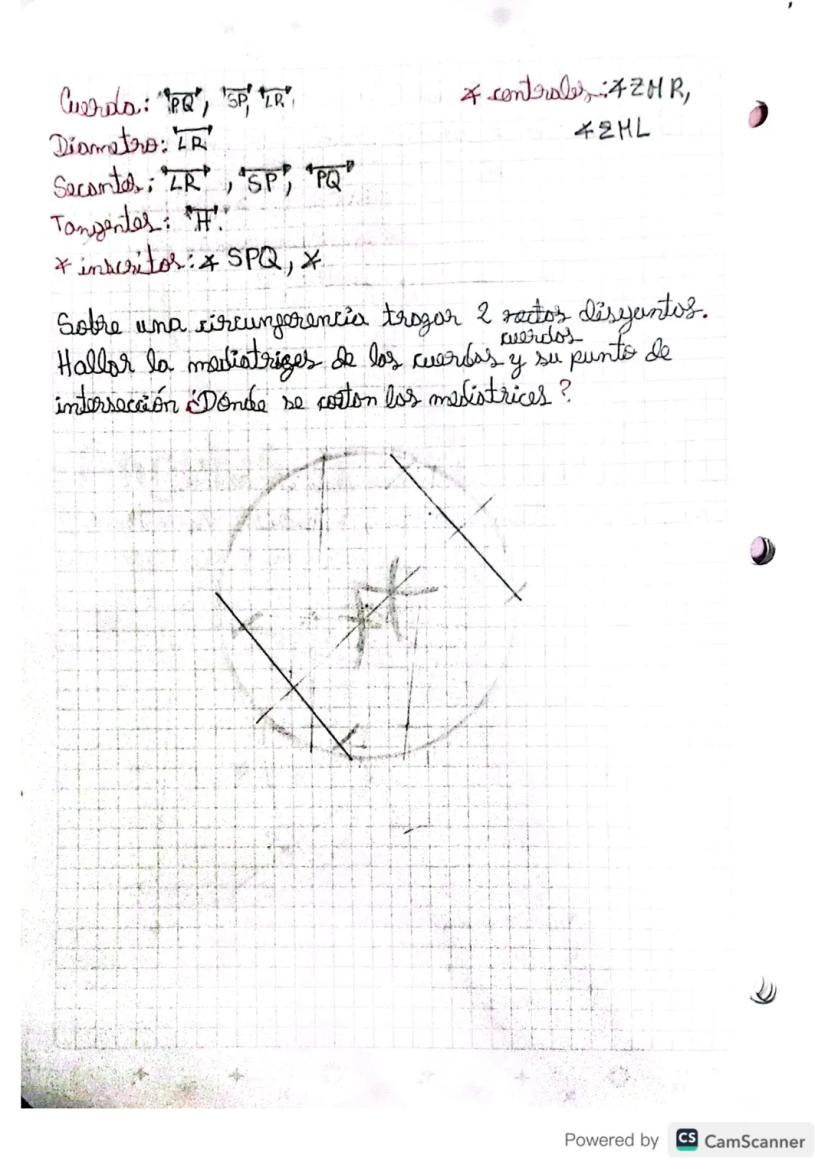 Cuerda: PQ, SP, LR.
∡ centrales: ∡ZHR,
∡ZHL
Diametro: LR
Secantes: LR, SP, PQ
Tangentes: H.
∡ inscritos: ∡ SPQ, ∡
Sobre una circunferencia trazar 2 rectas disyuntos.
cuerdas
Hallar la mediatrizes de las cuerdas y su punto de
intersección ¿Dónde se cortan las mediatrices?
Powered by CS CamScanner